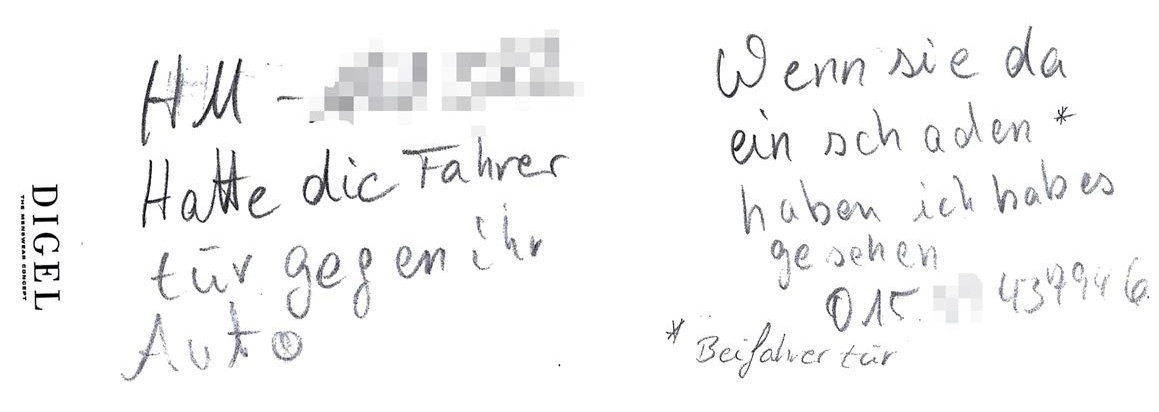 HM -
Hatte die Fahrer
tür gegen ihr
Auto
DIGEL
THE MENSWEAR CONCEPT
Wenn sie da
ein schaden *
haben ich habes
gesehen
015 4379446
* Beifahrer tür